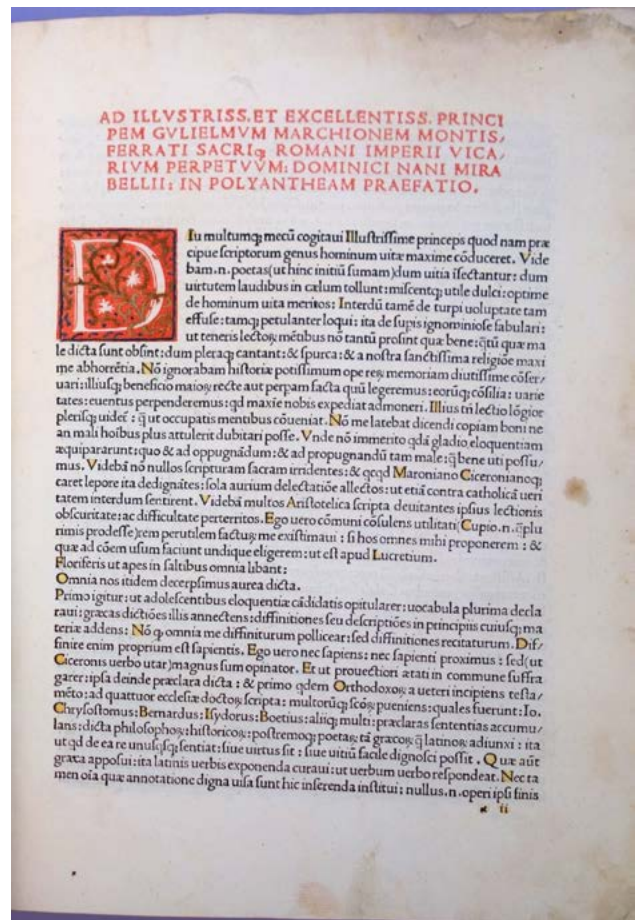 AD ILLVSTRISS. ET EXCELLENTISS. PRINCI
PEM GVLIELMVM MARCHIONEM MONTIS,
FERRATI SACRIqꝫ ROMANI IMPERII VICA,
RIVM PERPETVVM: DOMINICI NANI MIRA
BELLII: IN POLYANTHEAM PRAEFATIO.
DIu multumqꝫ mecū cogitaui Illustrissime princeps quod nam præ
cipue scriptorum genus hominum uitæ maxime cōduceret. Vide
bam.n.poetas(ut hinc initiū sumam)dum uitia isectantur: dum
uirtutem laudibus in cælum tollunt: miscentqꝫ utile dulci: optime
de hominum uita meritos: Interdū tamē de turpi uoluptate tam
effuse: tamqꝫ petulanter loqui: ita de supis ignominiose fabulari:
ut teneris lectoꝝ mētibus nō tantū prosint quæ bene: q̄tū quæ ma
le dicta sunt obsint: dum pleraqꝫ cantant: & spurca: & a nostra sanctissima religiōe maxi
me abhorrētia. Nō ignorabam historiæ potissimum ope reꝝ memoriam diutissime cōser/
uari: illiusqꝫ beneficio maioꝝ recte aut perpam facta quū legeremus: eorūqꝫ cōsilia: uarie
tates: euentus perpenderemus: qd maxie nobis expediat admoneri. Illius tn̄ lectio lōgior
plerisqꝫ uidet̄: q̄ ut occupatis mentibus cōueniat. Nō me latebat dicendi copiam boni ne
an mali hoībus plus attulerit dubitari posse. Vnde nō immerito qdā gladio eloquentiam
æquipararunt: quo & ad oppugnādum: & ad propugnandū tam male: q̄ bene uti possu/
mus. Videbā nō nullos scripturam sacram irridentes: & qcqd Maroniano Ciceronianoqꝫ
caret lepore ita dedignātes: sola aurium delectatiōe allectos: ut etiā contra catholicā ueri
tatem interdum sertirent. Videbā multos Aristotelica scripta deuitantes ipsius lectionis
obscuritate: ac difficultate perterritos. Ego uero cōmuni cōsulens utilitati(Cupio.n.q̄plu
rimis prodesse)rem perutilem facturꝫ me existimaui: si hos omnes mihi proponerem: &
quæ ad cōem usum faciunt undique eligerem: ut est apud Lucretium.
Floriferis ut apes in saltibus omnia libant:
Omnia nos itidem decerpsimus aurea dicta.
Primo igitur: ut adolescentibus eloquentiæ cādidatis opitularer: uocabula plurima decla
raui: græcas dictiōes illis annectens: diffinitiones seu descriptiōes in principiis cuiusqꝫ ma
teriæ addens: Nō qꝫ omnia me diffiniturum pollicear: sed diffinitiones recitaturum. Dif/
finire enim proprium est sapientis. Ego uero nec sapiens: nec sapienti proximus: sed(ut
Ciceronis uerbo utar)magnus sum opinator. Et ut prouectiori ætati in commune suffra
garer: ipsa deinde præclara dicta: & primo qdem Orthodoxoꝝ a ueteri incipiens testa/
mēto: ad quattuor ecclesiæ doctoꝝ scripta: multorūqꝫ scōꝝ pueniens: quales fuerunt: Io.
Chrysostomus: Bernardus: Isydorus: Boetius: aliiqꝫ multi: præclaras sententias accumu/
lans: dicta philosophoꝝ: historicoꝝ: postremoqꝫ poetaꝝ tā græcoꝝ q̄ latinoꝝ adiunxi: ita
ut qd de ea re unusqsqꝫ sentiat: siue uirtus sit: siue uitiū facile dignosci possit. Quæ aūt
græca apposui: ita latinis uerbis exponenda curaui: ut uerbum uerbo respondeat. Nec ta
men oīa quæ annotatione digna uisa sunt hic inserenda institui: nullus.n.operi ipsi finis
ii